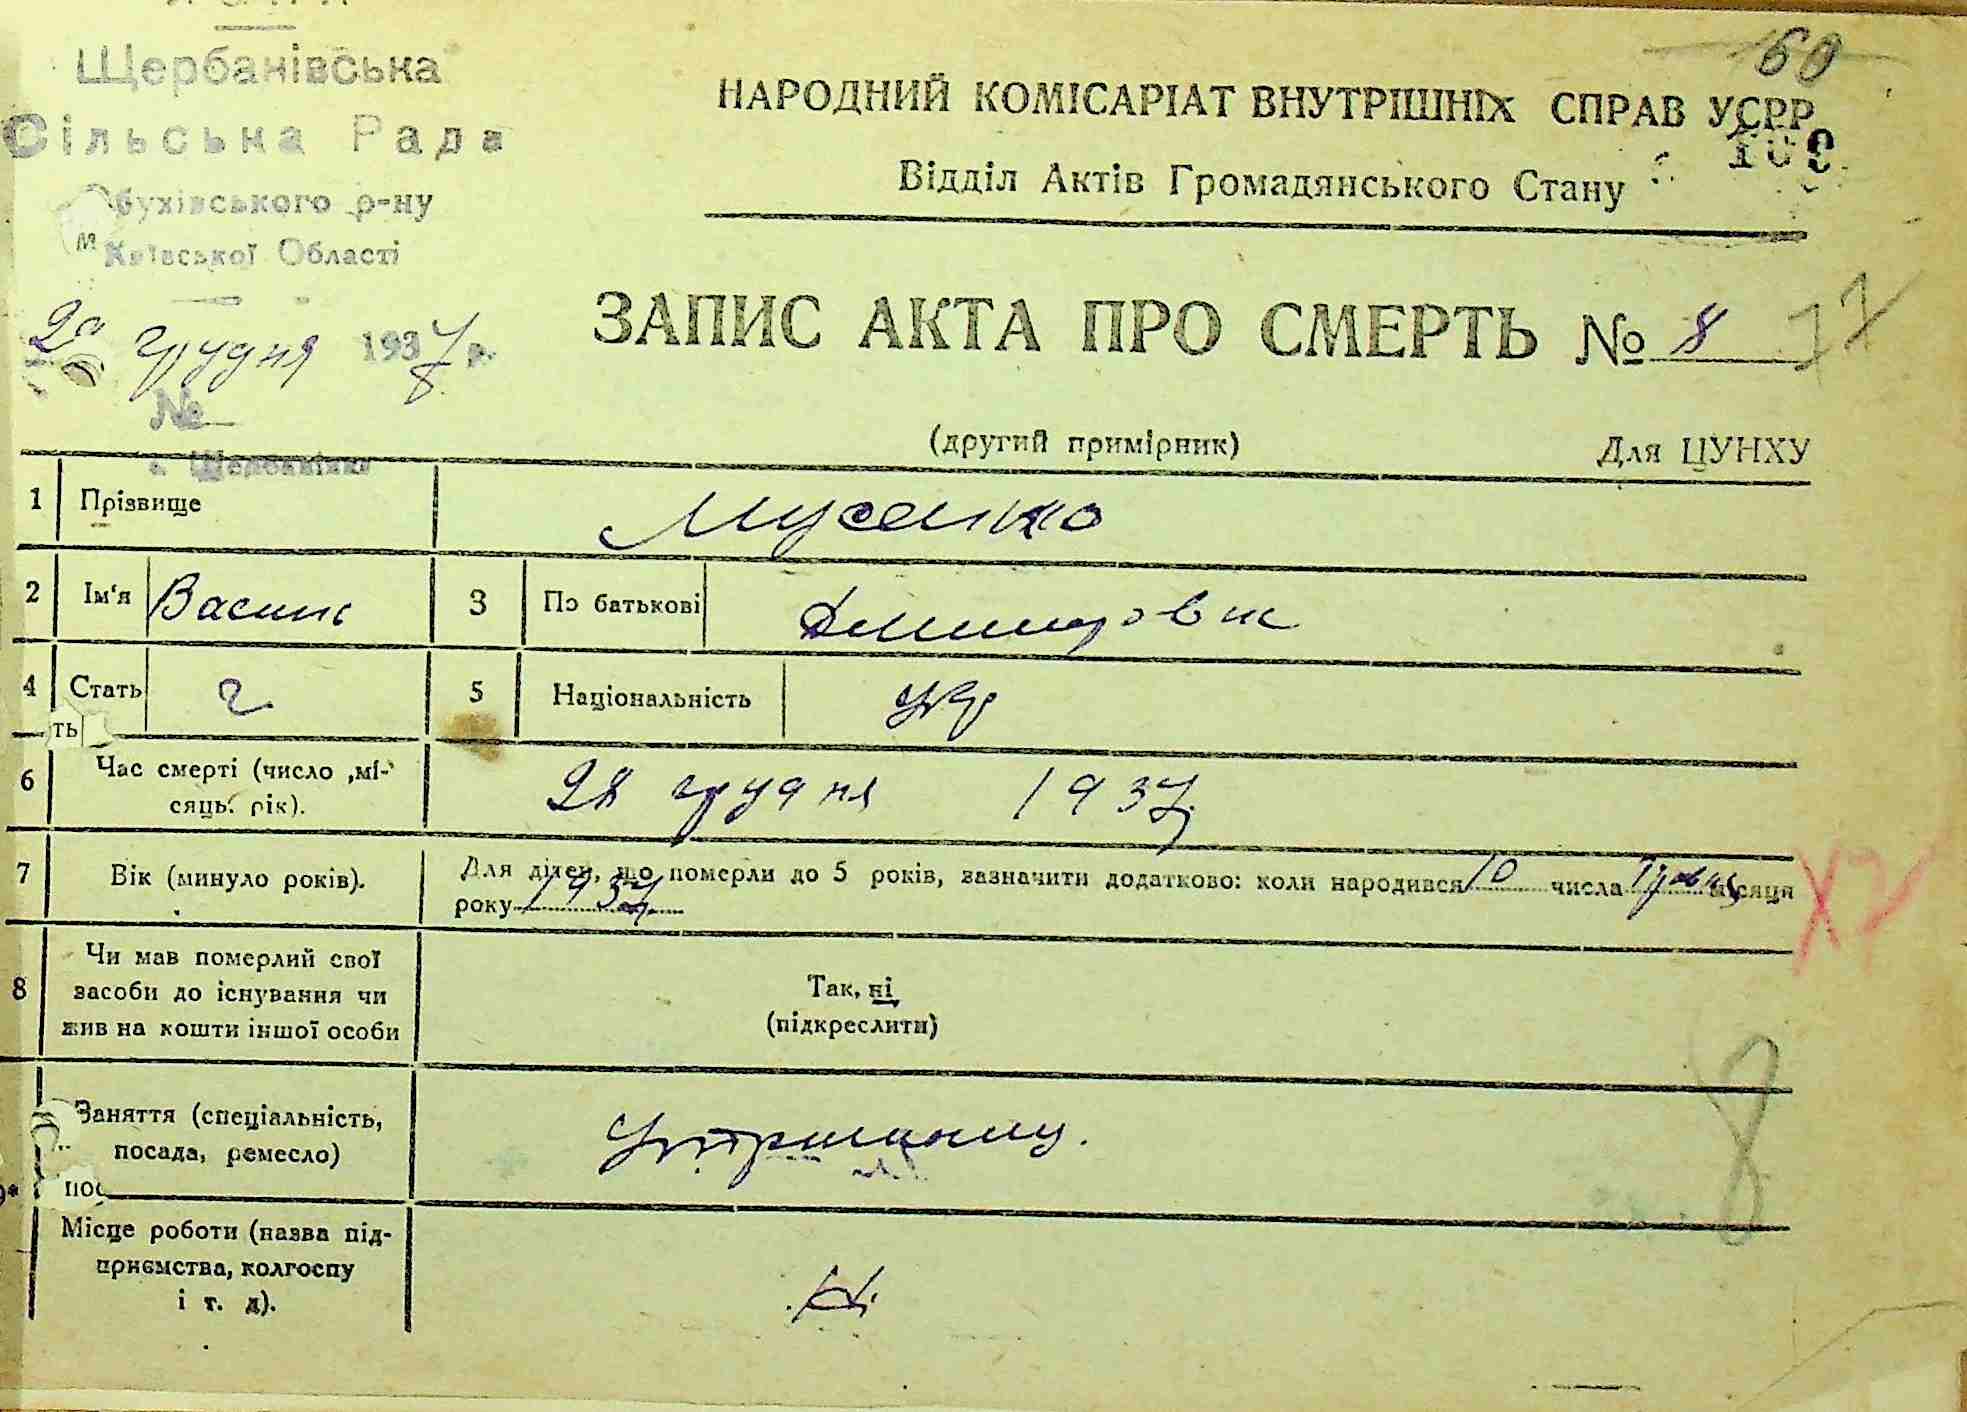 Щербанівська
Сільська Рада
бухівського р-ну
Київської Області
грудня 1937 р.
№
с. Щербанівка
60
НАРОДНИЙ КОМІСАРІАТ ВНУТРІШНІХ СПРАВ УСРР
Відділ Актів Громадянського Стану
ЗАПИС АКТА ПРО СМЕРТЬ № 8
17
(другий примірник) Для ЦУНХУ
1 Прізвище Мусенко
2 Ім'я Василь 3 По батькові Дмитрович
4 Стать ч. 5 Національність укр
ть
6 Час смерті (число, мі-
сяць. рік). 28 грудня 1937
7 Вік (минуло років). Для дітей, що померли до 5 років, зазначити додатково: коли народився 10 числа місяця
року 1937
8 Чи мав померлий свої
засоби до існування чи
жив на кошти іншої особи
Так, ні
(підкреслити)
Заняття (спеціальність,
посада, ремесло)
пос
Місце роботи (назва під-
приємства, колгоспу
і т. д).
8